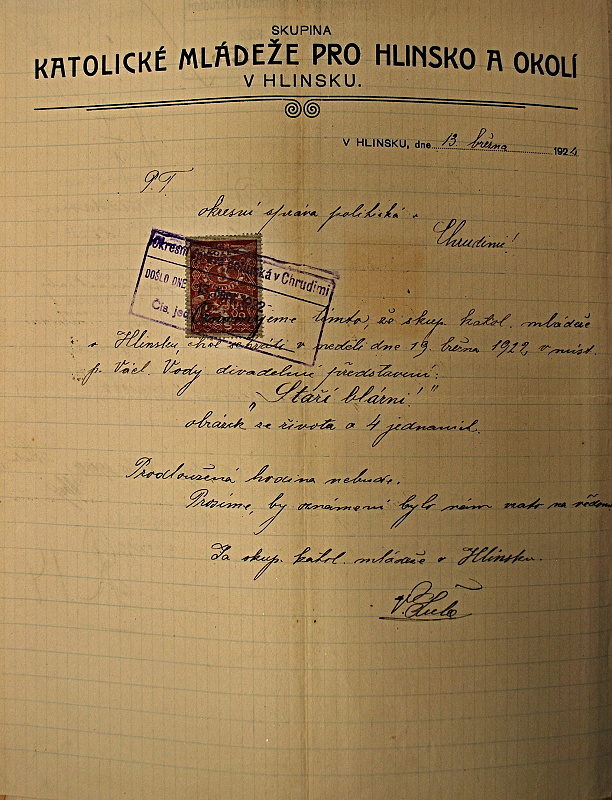 SKUPINA
KATOLICKÉ MLÁDEŽE PRO HLINSKO A OKOLÍ
V HLINSKU.
V HLINSKU, dne 13. března 192
P.T.
okresní správa politická v
Chrudimi!
Okresní ská v Chrudimi
DOŠLO DNE
Čís. jed
tímto, že skup. katol. mládeže
v Hlinsku v neděli dne 19. března 1922, v míst.
p. Václ. Vody divadelní představení:
"Staří blázni!"
obrázek ze života o 4 jednáních.
Prodloužená hodina nebude.
Prosíme, by oznámení bylo nám vzato na vědomí
Za skup. katol. mládeže v Hlinsku.